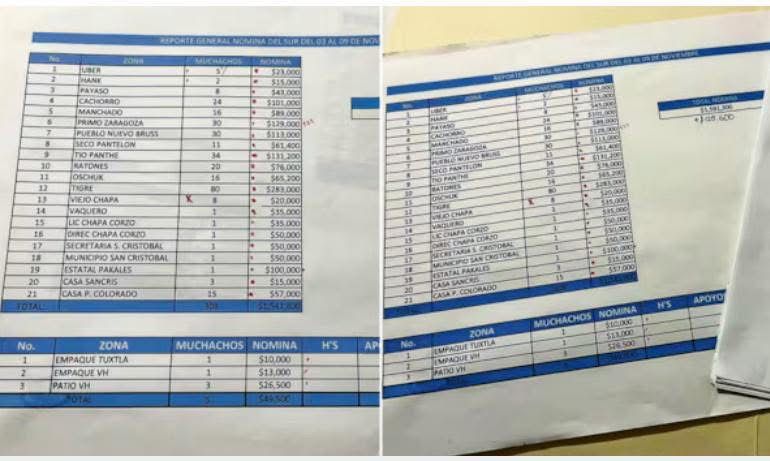 REPORTE GENERAL NOMINA DEL SUR DEL 03 AL 09 DE NOV
No. ZONA MUCHACHOS NOMINA
1 UBER 5 $23,000
2 HANK 2 $15,000
3 PAYASO 8 $43,000
4 CACHORRO 24 $101,000
5 MANCHADO 16 $89,000
6 PRIMO ZARAGOZA 30 $129,000
7 PUEBLO NUEVO BRUSS 30 $113,000
8 SECO PANTELON 11 $61,400
9 TIO PANTHE 34 $131,200
10 RATONES 20 $76,000
11 OSCHUK 16 $65,200
12 TIGRE 80 $283,000
13 VIEJO CHAPA X 8 $20,000
14 VAQUERO 1 $35,000
15 LIC CHAPA CORZO 1 $35,000
16 DIREC CHAPA CORZO 1 $50,000
17 SECRETARIA S. CRISTOBAL 1 $50,000
18 MUNICIPIO SAN CRISTOBAL 1 $50,000
19 ESTATAL PAKALES 1 $100,000
20 CASA SANCRIS 3 $15,000
21 CASA P. COLORADO 15 $57,000
TOTAL
No. ZONA MUCHACHOS NOMINA H'S AP
1 EMPAQUE TUXTLA 1 $10,000
2 EMPAQUE VH 1 $13,000
3 PATIO VH 3 $26,500
TOTAL 5 $49,500
REPORTE GENERAL NOMINA DEL SUR DEL 03 AL 09 DE NOVIEMBRE
No. ZONA MUCHACHOS NOMINA
1 UBER 5 $23,000
2 HANK 2 $15,000
3 PAYASO 8 $43,000
4 CACHORRO 24 $101,000
5 MANCHADO 16 $89,000
6 PRIMO ZARAGOZA 30 $129,000
7 PUEBLO NUEVO BRUSS 30 $113,000
8 SECO PANTELON 11 $61,400
9 TIO PANTHE 34 $131,200
10 RATONES 20 $76,000
11 OSCHUK 16 $65,200
12 TIGRE 80 $283,000
13 VIEJO CHAPA X 8 $20,000
14 VAQUERO 1 $35,000
15 LIC CHAPA CORZO 1 $35,000
16 DIREC CHAPA CORZO 1 $50,000
17 SECRETARIA S. CRISTOBAL 1 $50,000
18 MUNICIPIO SAN CRISTOBAL 1 $50,000
19 ESTATAL PAKALES 1 $100,000
20 CASA SANCRIS 3 $15,000
21 CASA P. COLORADO 15 $57,000
TOTAL
TOTAL NOMINA
No. ZONA MUCHACHOS NOMINA H'S APOYO
1 EMPAQUE TUXTLA 1 $10,000
2 EMPAQUE VH 1 $13,000
3 PATIO VH 3 $26,500
TOTAL